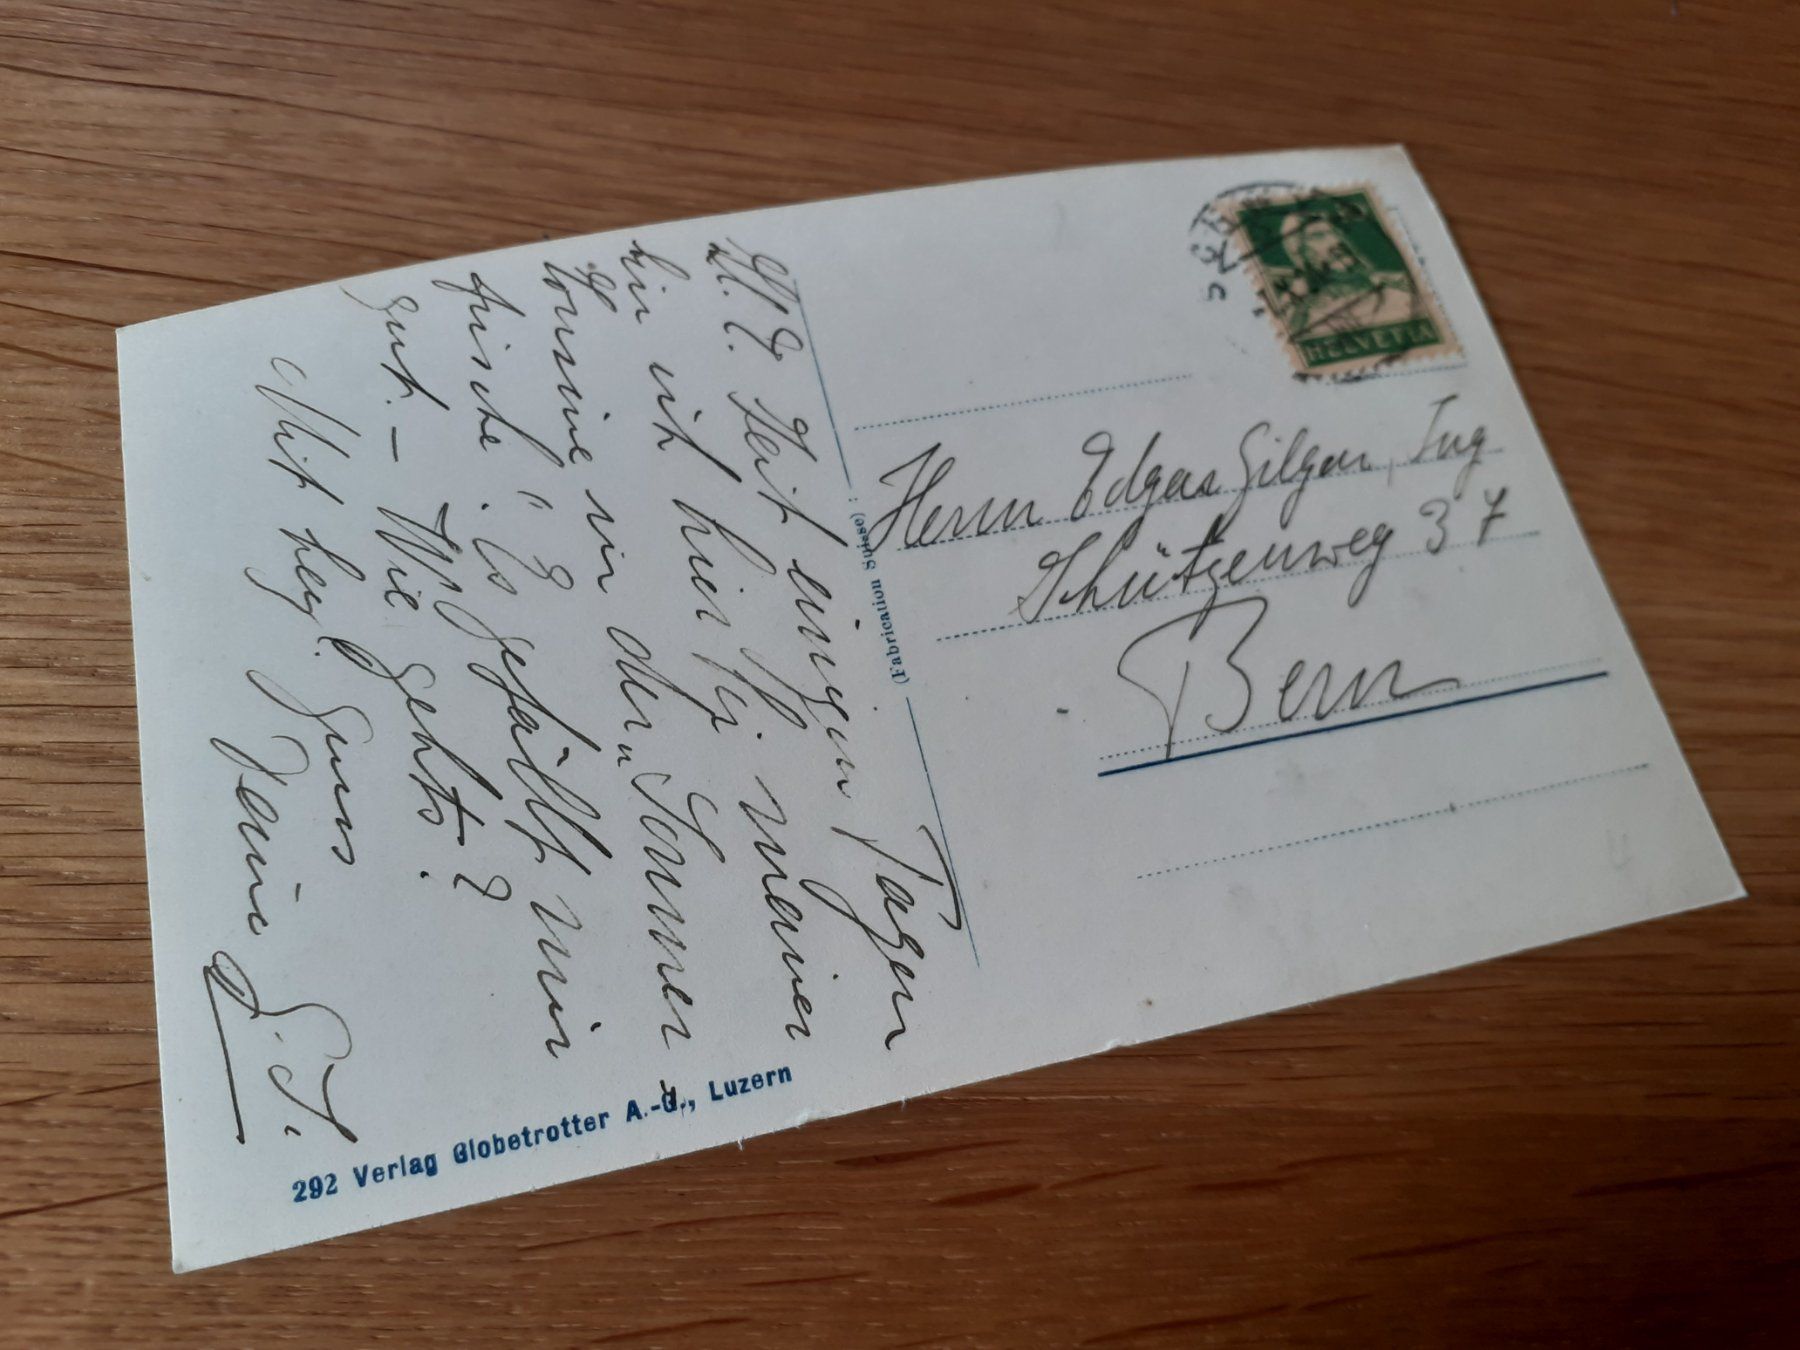 M. E. Seit einigen Tagen
bin ich hier bei meiner
Cousine in der „Sommer
frische“. Es gefällt mir
gut. – Wie gehts?
Mit herzl. Gruss
Deine
292 Verlag Globetrotter A.-G., Luzern
(Fabrication Suisse)
HELVETIA
Herrn Edgar Gilgen, Ing
Schützenweg 37
Bern